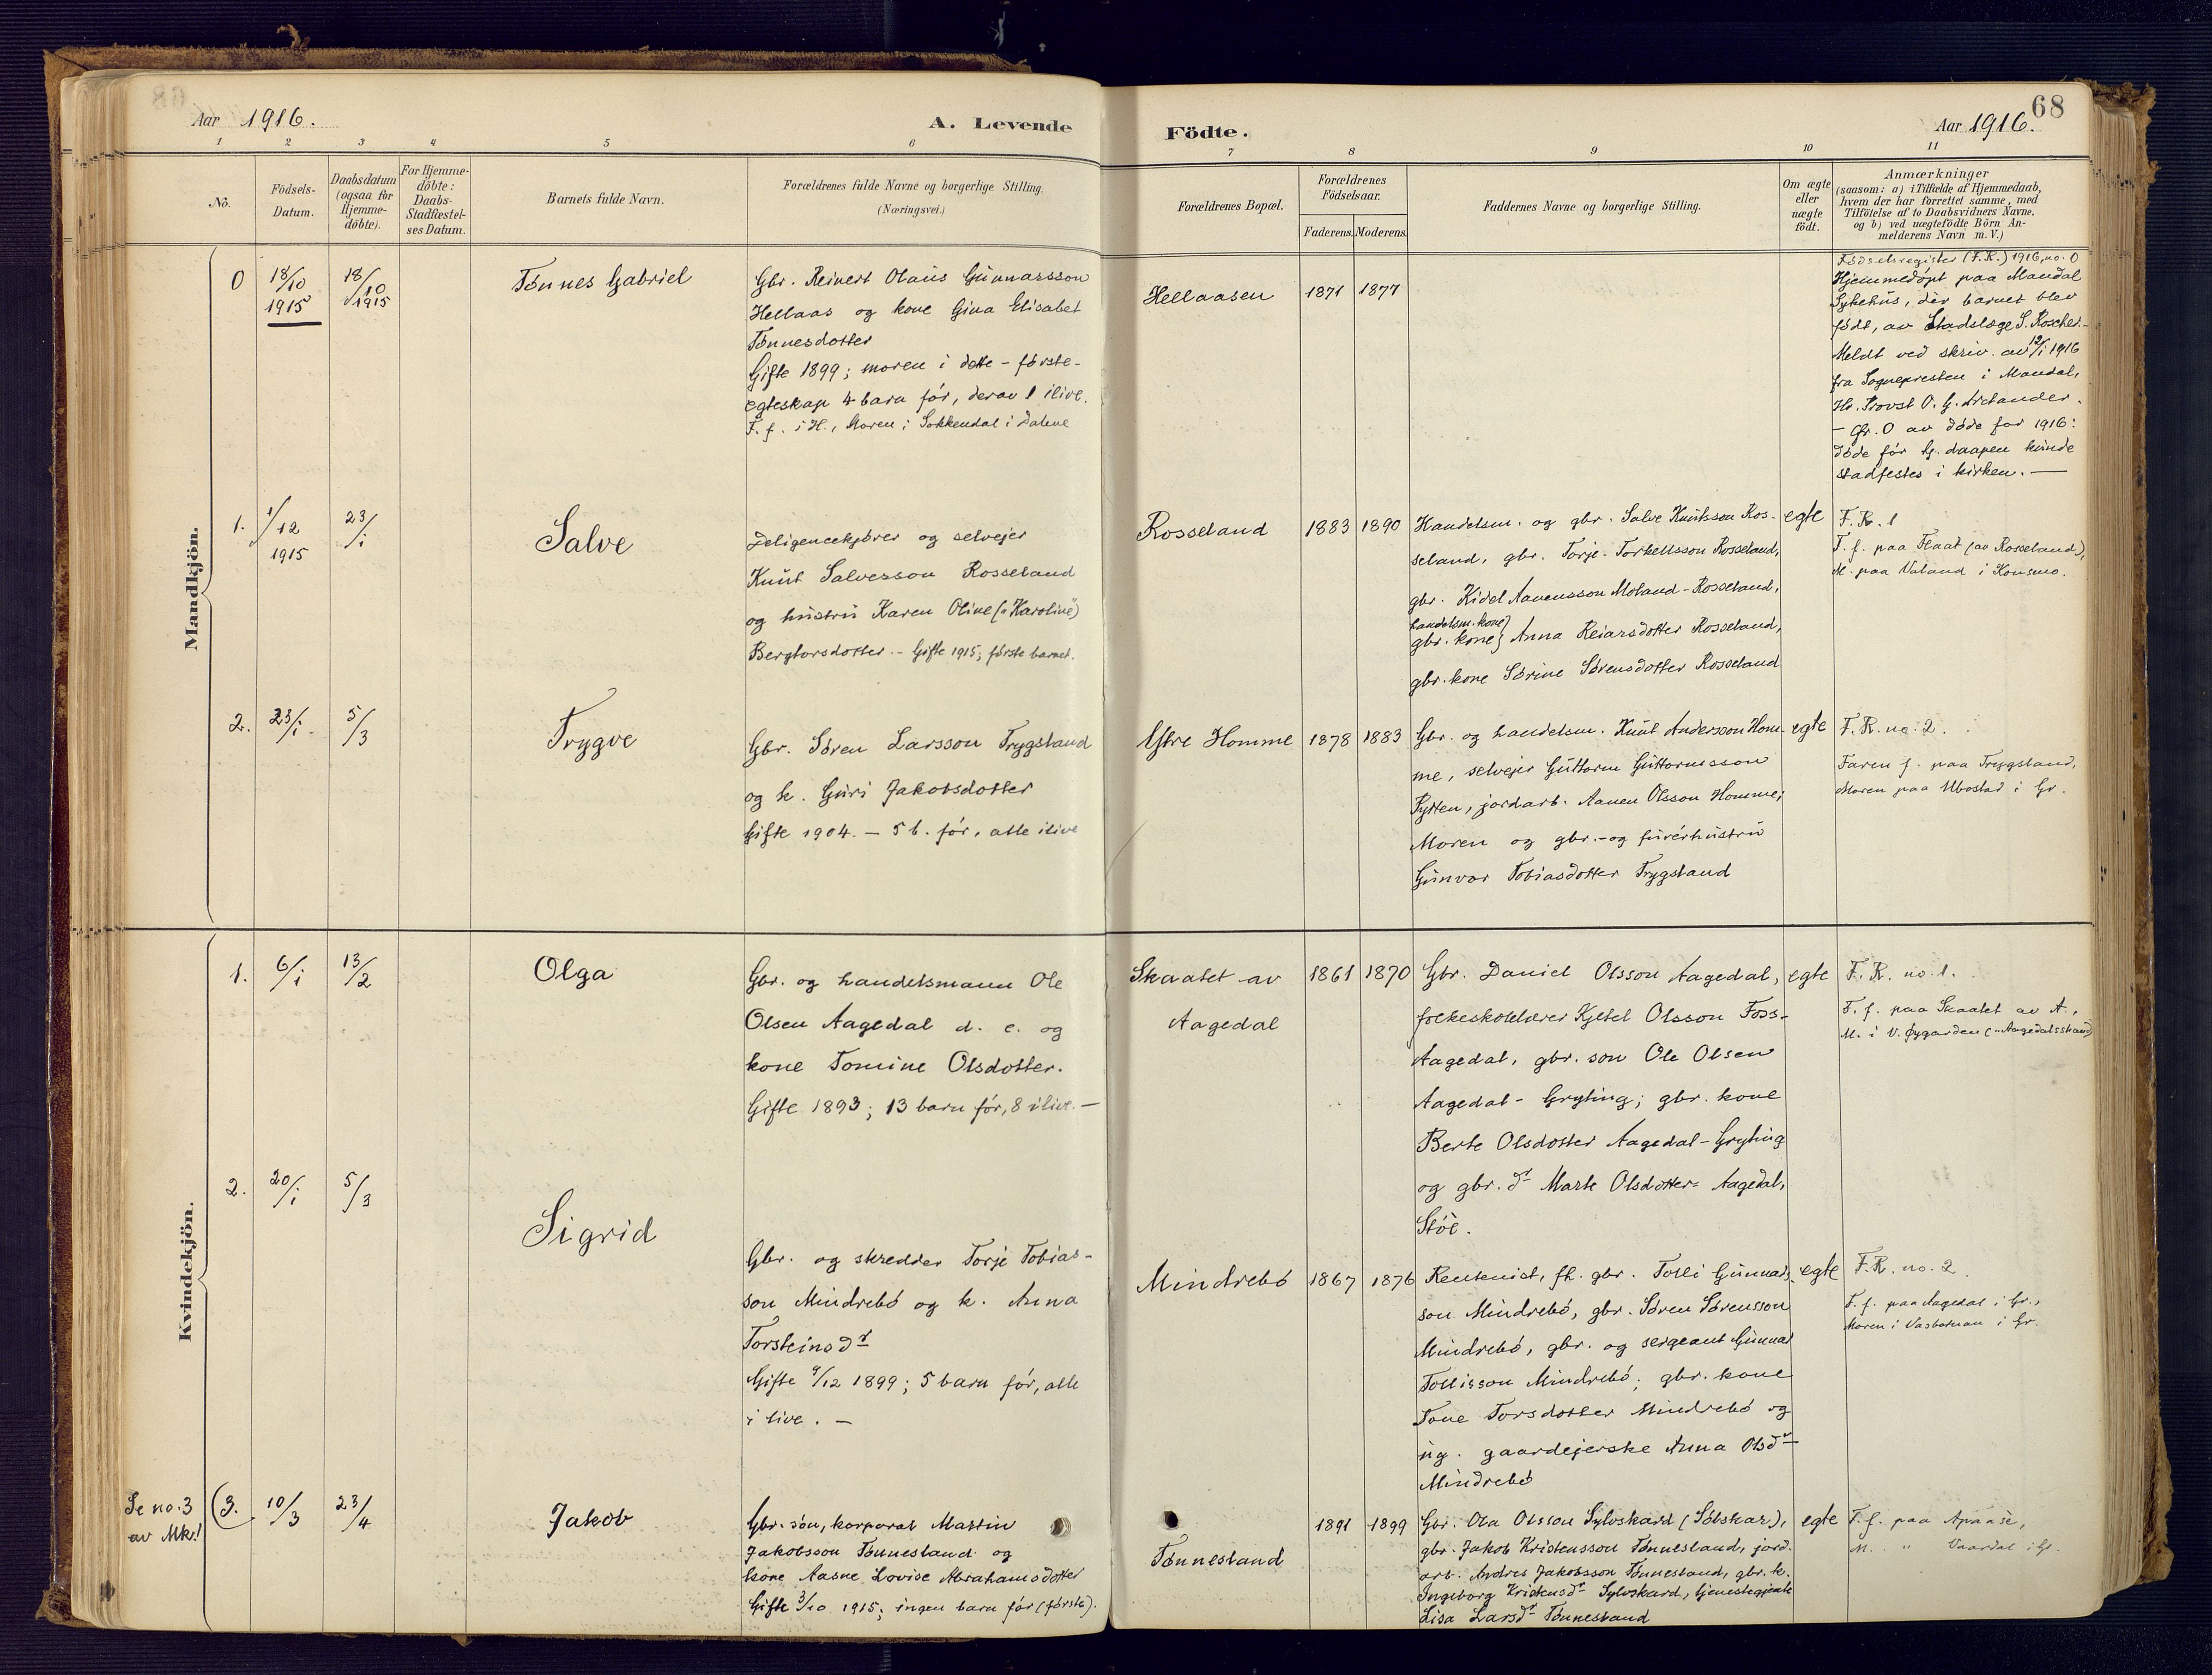 68
Aar 1916.
A. Levende Födte.
Aar 1916.
1 2 3 4 5 6 7 8 9 10 11
No.
Födsels-
Datum.
Daabsdatum
(ogsaa for
Hjemme-
döbte).
For Hjemme-
döbte:
Daabs-
Stadfæstel-
ses Datum.
Barnets fulde Navn.
Forældrenes fulde Navne og borgerlige Stilling.
(Næringsvei.)
Forældrenes Bopæl.
Forældrenes
Födselsaar.
Faderens. Moderens.
Faddernes Navne og borgerlige Stilling.
Om ægte
eller
uægte
födt.
Anmærkninger
(saasom: a) i Tilfælde af Hjemmedaab,
hvem der har forrettet samme, med
Tilföielse af to Daabsvidners Navne,
og b) ved uægtefödte Börn An-
melderens Navn m. V.)
Mandkjön.
0
18/10
1915
18/10
1915
Tønnes Gabriel
Gbr. Reinert Olaus Gunnarsson
Hellaas og kone Gina Elisabet
Tønnesdotter
Gifte 1899; moren i dette - første-
egteskap 4 barn før, derav 1 ilive.
F. f. i H., Moren i Sokkendal i Dalene
Hellaasen
1871 1877
Fødselsregister (F.R.) 1916, no. 0
Hjemmedøpt paa Mandal
Sykehus, dèr barnet blev
født, av Stadslæge S. Roscher.-
Meldt ved skriv. av 12/i 1916
fra Sognepresten i Mandal,
Hr. Provst O. G. Arctander.
- Gr. 0 av døde for 1916:
døde før hj. daapen kunde
stadfestes i kirken. —
1.
1/12
1915
23/i
Salve
Deligencekjører og selvejer
Knut Salvesson Rosseland
og hustru Karen Oline („Karoline")
Bergtorsdotter. - Gifte 1915; første barnet.
Rosseland
1883 1890
Handelsm. og gbr. Salve Knutsson Ros-
seland, gbr. Torje Torkellsson Rosseland,
gbr. Kidel Aanensson Moland-Rosseland,
handelsm. kone}
gbr. kone} Anna Reiarsdotter Rosseland,
gbr. kone Sørine Sørensdotter Rosseland
egte
F. R. 1
F. f. paa Flaat (av Rosseland),
M. paa Valand i Konsmo.
2.
23/i
5/3
Trygve
Gbr. Søren Larsson Trygsland
og k. Guri Jakobsdotter
Gifte 1904. — 5 b. før, alle ilive
Ytre Homme
1878 1883
Gbr. og handelsm. Knut Andersson Hom-
me, selvejer Guttorm Guttormsson
Rytten, jordarb. Aanen Olsson Homme;
Moren og gbr.- og furérhustru
Gunvor Tobiasdotter Trygsland
egte
F. R. no. 2.
Faren f. paa Trygsland,
Moren paa Ubostad i Gr.
Kvindekjön.
1.
6/i
13/2
Olga
Gbr. og handelsmann Ole
Olsen Aagedal d. e. og
kone Tomine Olsdotter.
Gifte 1893; 13 barn før, 8 ilive. —
Skaalet av
Aagedal
1861 1870
Gbr. Daniel Olsson Aagedal,
folkeskolelærer Kjetel Olsson Foss-
Aagedal, gbr. son Ole Olsen
Aagedal - Gryting; gbr. kone
Berte Olsdotter Aagedal-Gryting
og gbr. dr Marte Olsdotter Aagedal,
Støle.
egte
F. R. no. 1.
F. f. paa Skaalet av A.,
M. i V. Øygarden („Aagedalsstrand
2.
20/i
5/3
Sigrid
Gbr. og skredder Torje Tobias-
son Mindrebø og k. Anna
Torsteinsdr
Gifte 9/12 1899; 5 barn før, alle
i live. —
Mindrebø
1867 1876
Rentenist, fh. gbr. Tolli Gunnars-
son Mindrebø, gbr. Søren Sørensson
Mindrebø, gbr. og sergeant Gunnar
Tollisson Mindrebø; gbr. kone
Tone Torsdotter Mindrebø og
ug. gaardejerske Anna Olsdr
Mindrebø
egte
F. R. no. 2
F. f. paa Aagedal i Gr.,
Moren i Vasbotnan i Gr.
Se no. 3
av Mk!
(3.
10/3
23/4
Jakob
Gbr. søn, korporal Martin
Jakobsson Tønnesland og
kone Aasne Lovise Abrahamsdotter
Gifte 3/10 1915; ingen barn før (første).
Tønnesland
1891 1899
Gbr. Ola Olsson Sylvskard (Sølskar),
gbr. Jakob Kristensson Tønnesland, jord-
arb. Andres Jakobsson Tønnesland, gbr. k.
Ingeborg Kristensdr Sylvskard, tjenestegjente
Lisa Larsdr Tønnesland
egte
F. f. paa
M. " Vaardal i Gr.